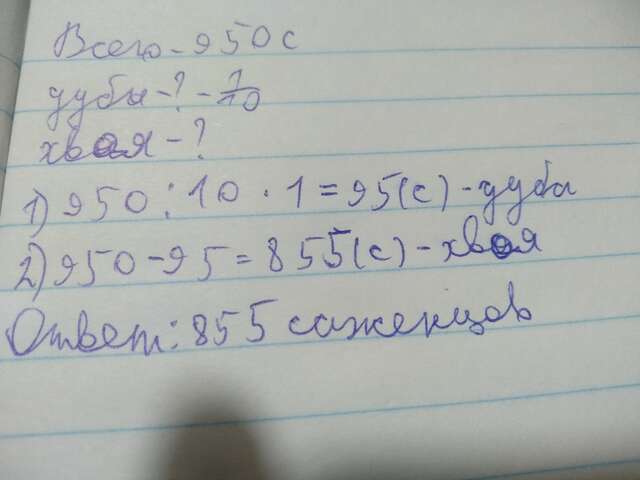 Всего - 950 с
дубы - ? - 1/10
хвоя - ?
1) 950 : 10 · 1 = 95 (с) - дуба
2) 950 - 95 = 855 (с) - хвоя
Ответ: 855 саженцов